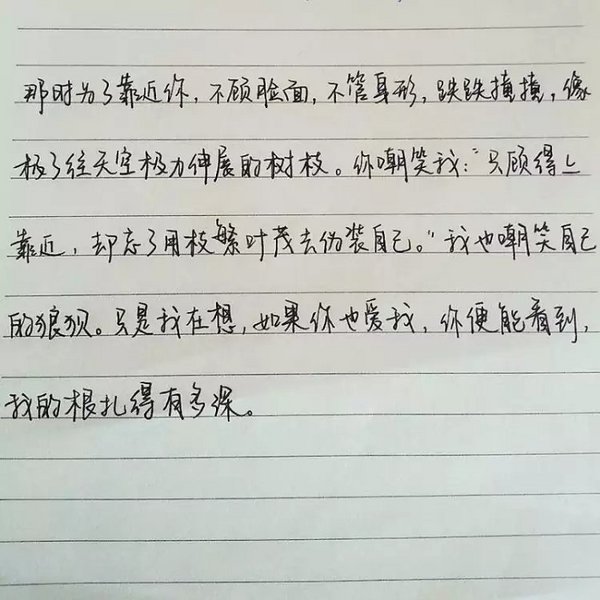 那时为了靠近你，不顾脸面，不管身形，跌跌撞撞，像
极了往天空极力伸展的树枝。你嘲笑我：“只顾得上
靠近，却忘了用枝繁叶茂去伪装自己。”我也嘲笑自己
的狼狈。只是我在想，如果你也爱我，你便能看到，
我的根扎得有多深。